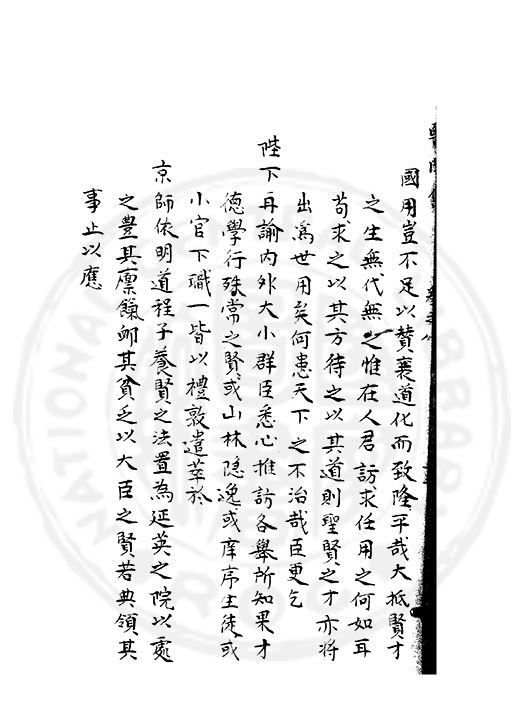 國用豈不足以贊襄道化而致隆平哉大抵賢才
之生無代無之惟在人君訪求任用之何如耳
苟求之以其方待之以其道則聖賢之才亦將
出爲世用矣何患天下之不治哉臣更乞
陛下再諭内外大小群臣悉心推訪各舉所知果才
德學行殊常之賢或山林隠逸或庠序生徒或
小官下職一皆以禮敦遣萃於
京師依明道程子養賢之法置為延英之院以處
之豊其廪餼卹其貧乏以大臣之賢若典領其
事止以應